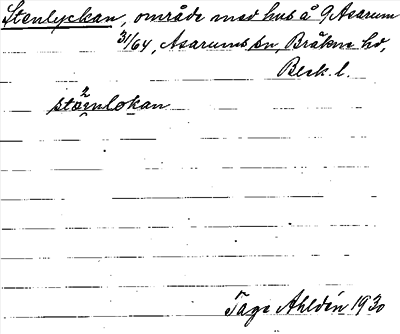 Stenlyckan, område med hus å 9 Asarum
31/64, Asarums sn, Bräkne hd,
Blek. l.
stænlokan
Tage Ahldén 1930